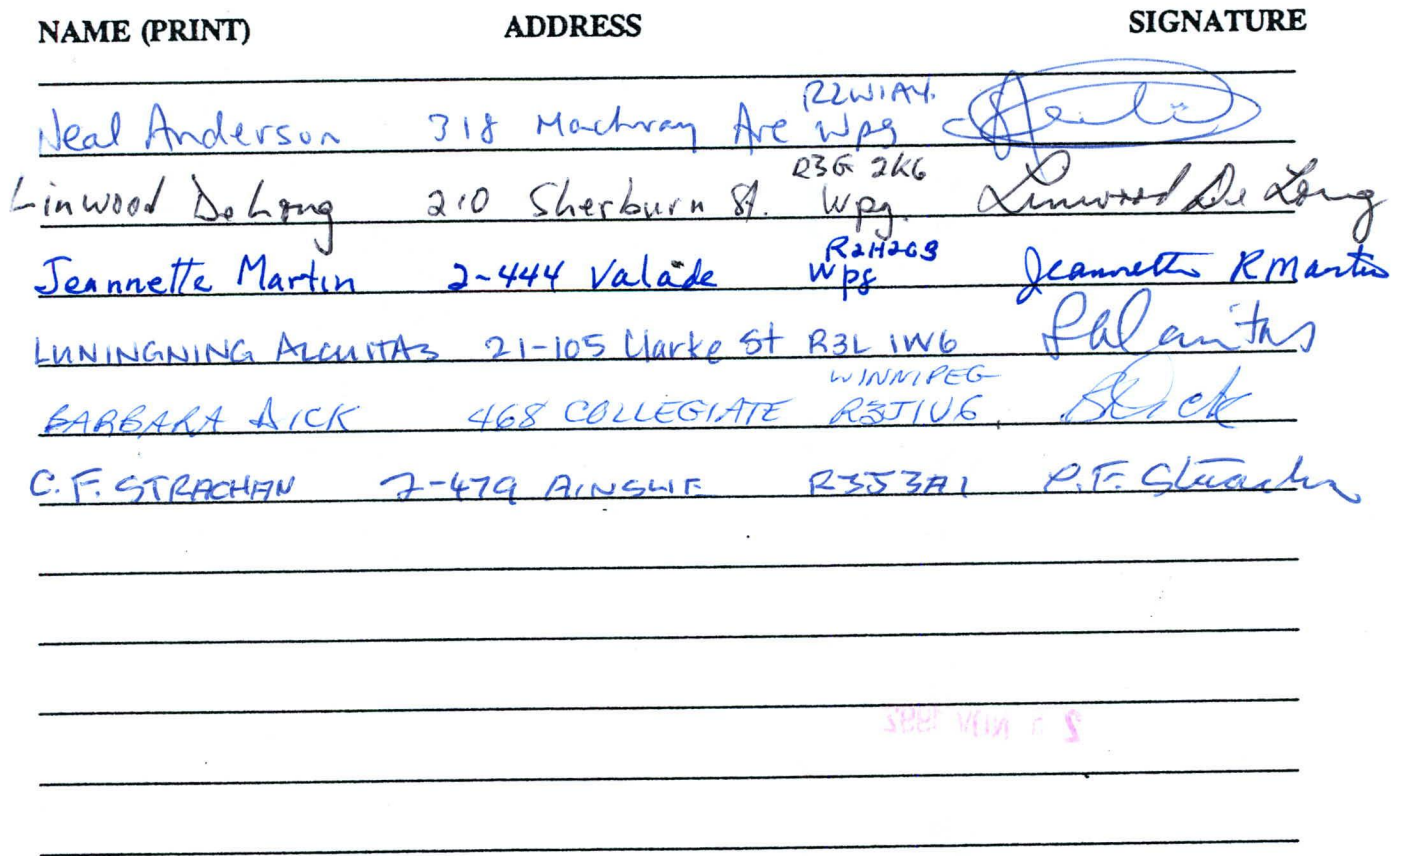 NAME (PRINT) ADDRESS SIGNATURE
R2W1A4.
Neal Anderson 318 Machray Ave Wpg
R3G 2K6
Linwood DeLong 210 Sherburn St. Wpg. Linwood De Long
R2H2G3
Jeannette Martin 2-444 Valade Wpg Jeannette R Martin
LUNINGNING ALCUITAS 21-105 Clarke St R3L 1W6
WINNIPEG
BARBARA DICK 468 COLLEGIATE R3J1U6 BDick
C.F. STRACHAN 7-479 AINSLIE R3J3A1 C.F. Strachan